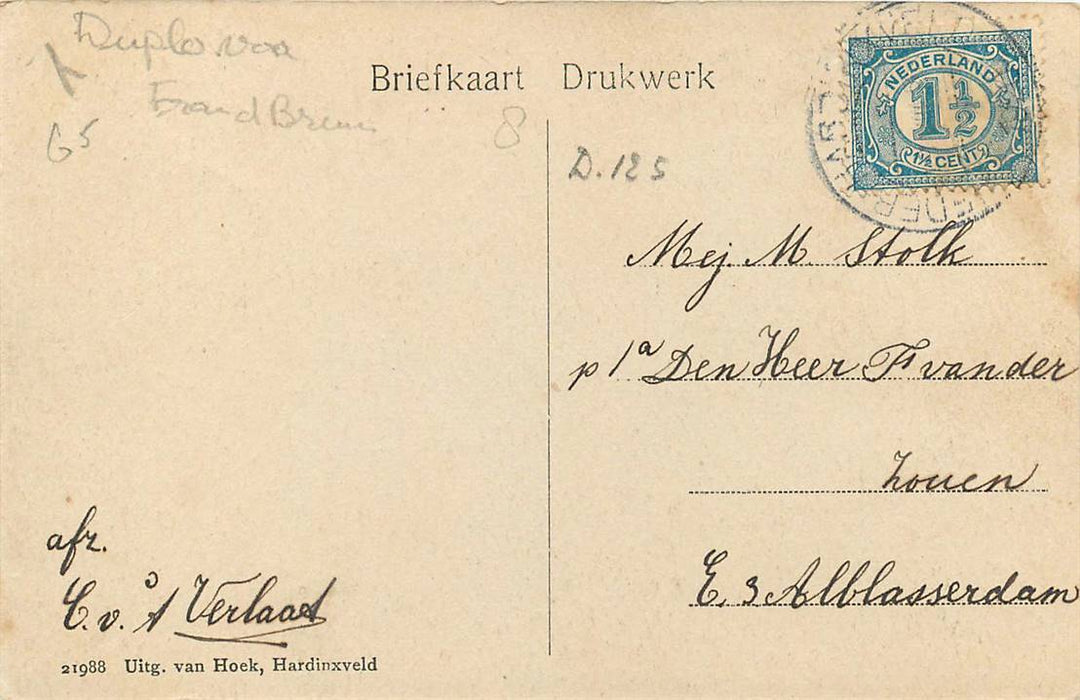 Duplo voor
65
8
Briefkaart Drukwerk
NEDERLAND
1 1/2
1½ CENT
D. 125
Mej. M. Stolk
p/a Den Heer F van der
Zouen
E. 3 Alblasserdam
afz.
C. v. 't Verlaat
21988 Uitg. van Hoek, Hardinxveld